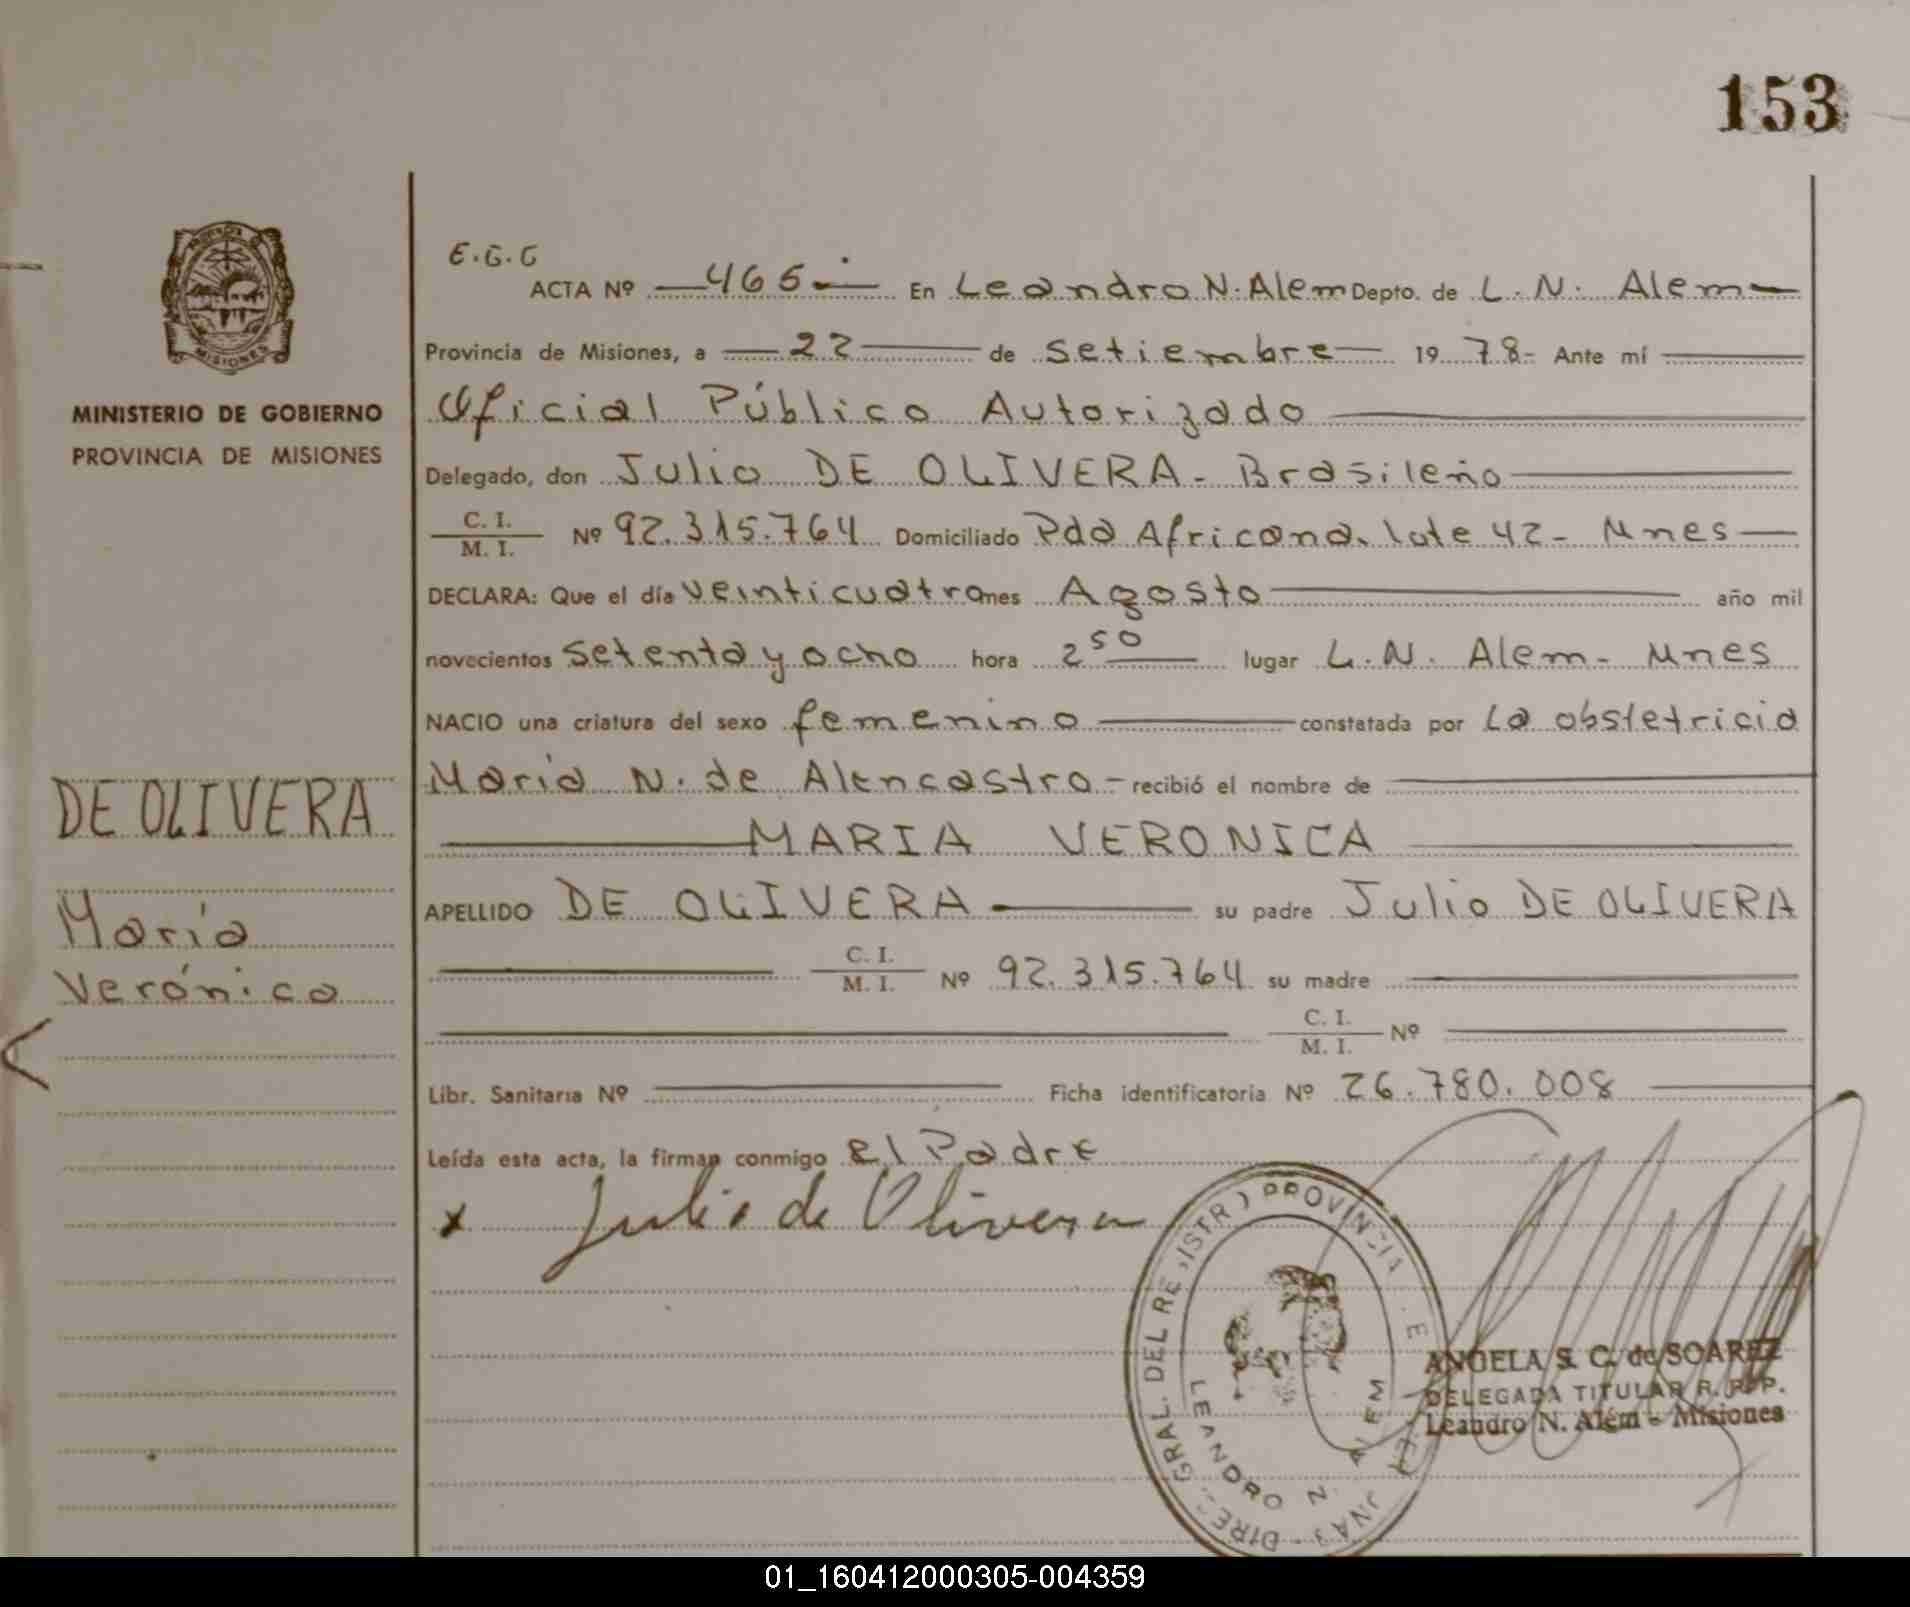 153
PROVINCIA DE
MISIONES
MINISTERIO DE GOBIERNO
PROVINCIA DE MISIONES
DE OLIVERA
María
Verónica
E.G.G
ACTA Nº 465 En Leandro N. Alem Depto. de L. N. Alem
Provincia de Misiones, a 22 de setiembre 19 78- Ante mí
Oficial Público Autorizado
Delegado, don Julio DE OLIVERA - Brasileño
C. I.
M. I. Nº 92.315.764 Domiciliado Pda Africana. lote 42 - Mnes
DECLARA: Que el día veinticuatro mes Agosto año mil
novecientos setenta y ocho hora 2 50 lugar L.N. Alem - Mnes
NACIO una criatura del sexo femenino constatada por La obstetricia
Maria N. de Alencastro - recibió el nombre de
MARIA VERONICA
APELLIDO DE OLIVERA su padre Julio DE OLIVERA
C. I.
M. I. Nº 92.315.764 su madre
C. I.
M. I. Nº
Libr. Sanitaria Nº Ficha identificatoria Nº 26.780.008
Leída esta acta, la firman conmigo el Padre
x Julio de Olivera
LEANDRO N. ALEM
ANGELA S. C. de SOAREZ
DELEGADA TITULAR R. P. P.
Leandro N. Além - Misiones
01_160412000305-004359